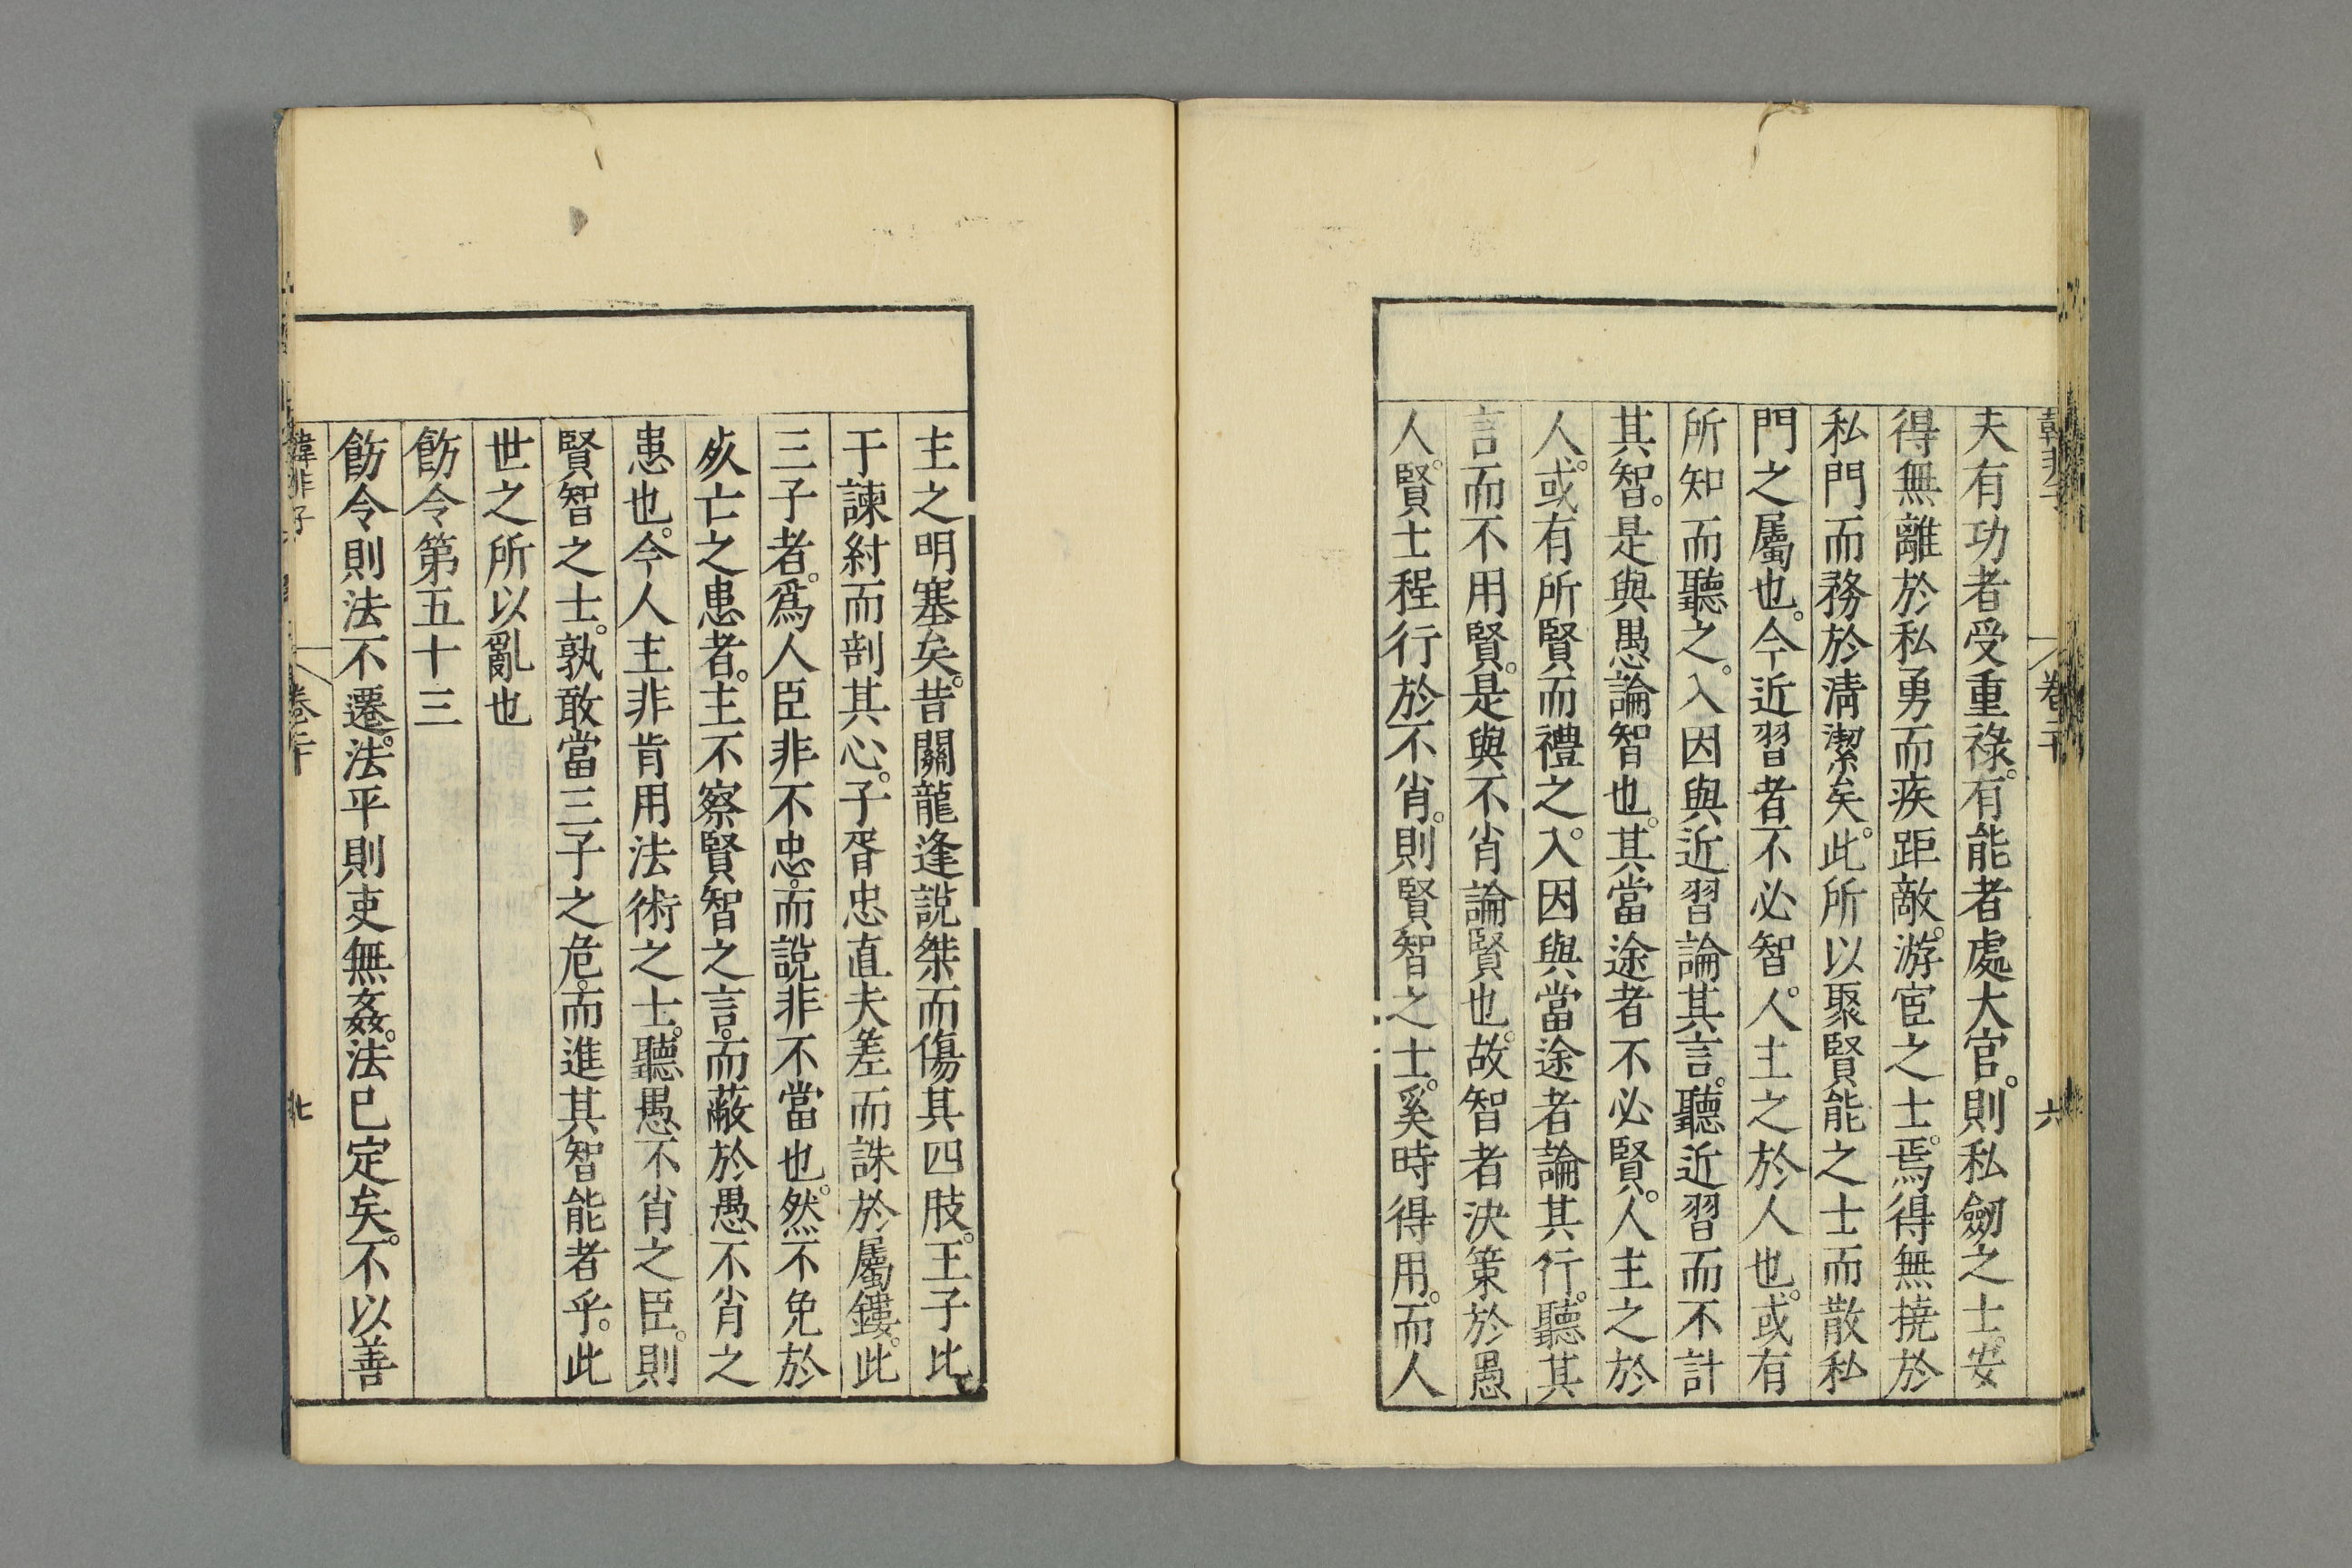 韓非子 卷二十 六
夫有功者受重祿。有能者處大官。則私劒之士。安
得無離於私勇而疾距敵。游宦之士。焉得無撓於
私門而務於淸潔矣。此所以聚賢能之士而散私
門之屬也。今近習者不必智。人主之於人也。或有
所知而聽之。入因與近習論其言。聽近習而不計
其智。是與愚論智也。其當途者不必賢。人主之於
人。或有所賢而禮之。入因與當途者論其行。聽其
言而不用賢。是與不肖論賢也。故智者決策於愚
人。賢士程行於不肖。則賢智之士。奚時得用。而人
主之明塞矣。昔關龍逢說桀而傷其四肢。王子比
干諫紂而剖其心。子胥忠直夫差而誅於屬鏤。此
三子者。爲人臣非不忠。而說非不當也。然不免於
死亡之患者。主不察賢智之言。而蔽於愚不肖之
患也。今人主非肯用法術之士。聽愚不肖之臣。則
賢智之士。孰敢當三子之危。而進其智能者乎。此
世之所以亂也
飭令第五十三
飭令則法不遷。法平則吏無姦。法已定矣。不以善
韓非子 卷二十